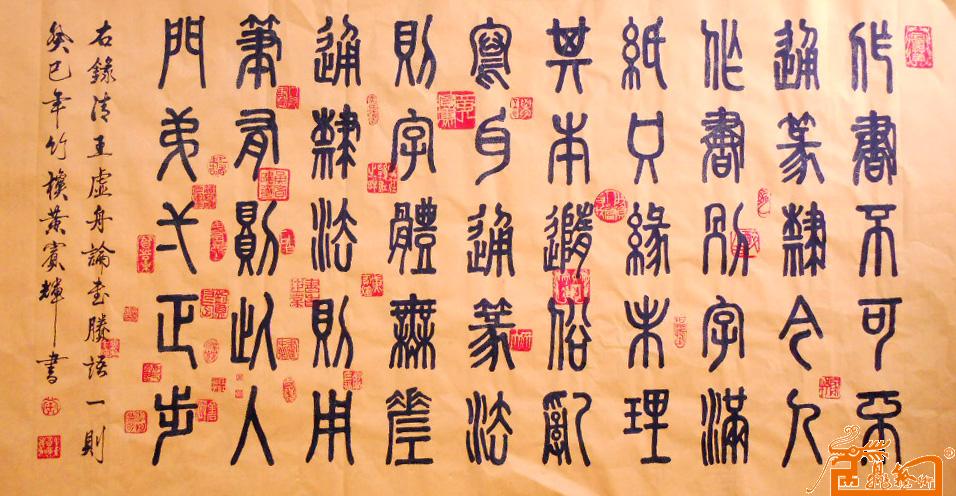 作書不可不
通篆隸今人
作書別字滿
紙只緣未理
其本隨俗亂
寫耳通篆法
則字體無差
通隸法則用
筆有則此入
門弟弌正步
右錄清王虛舟論書賸語一則
癸巳年竹樸黃賓輝書